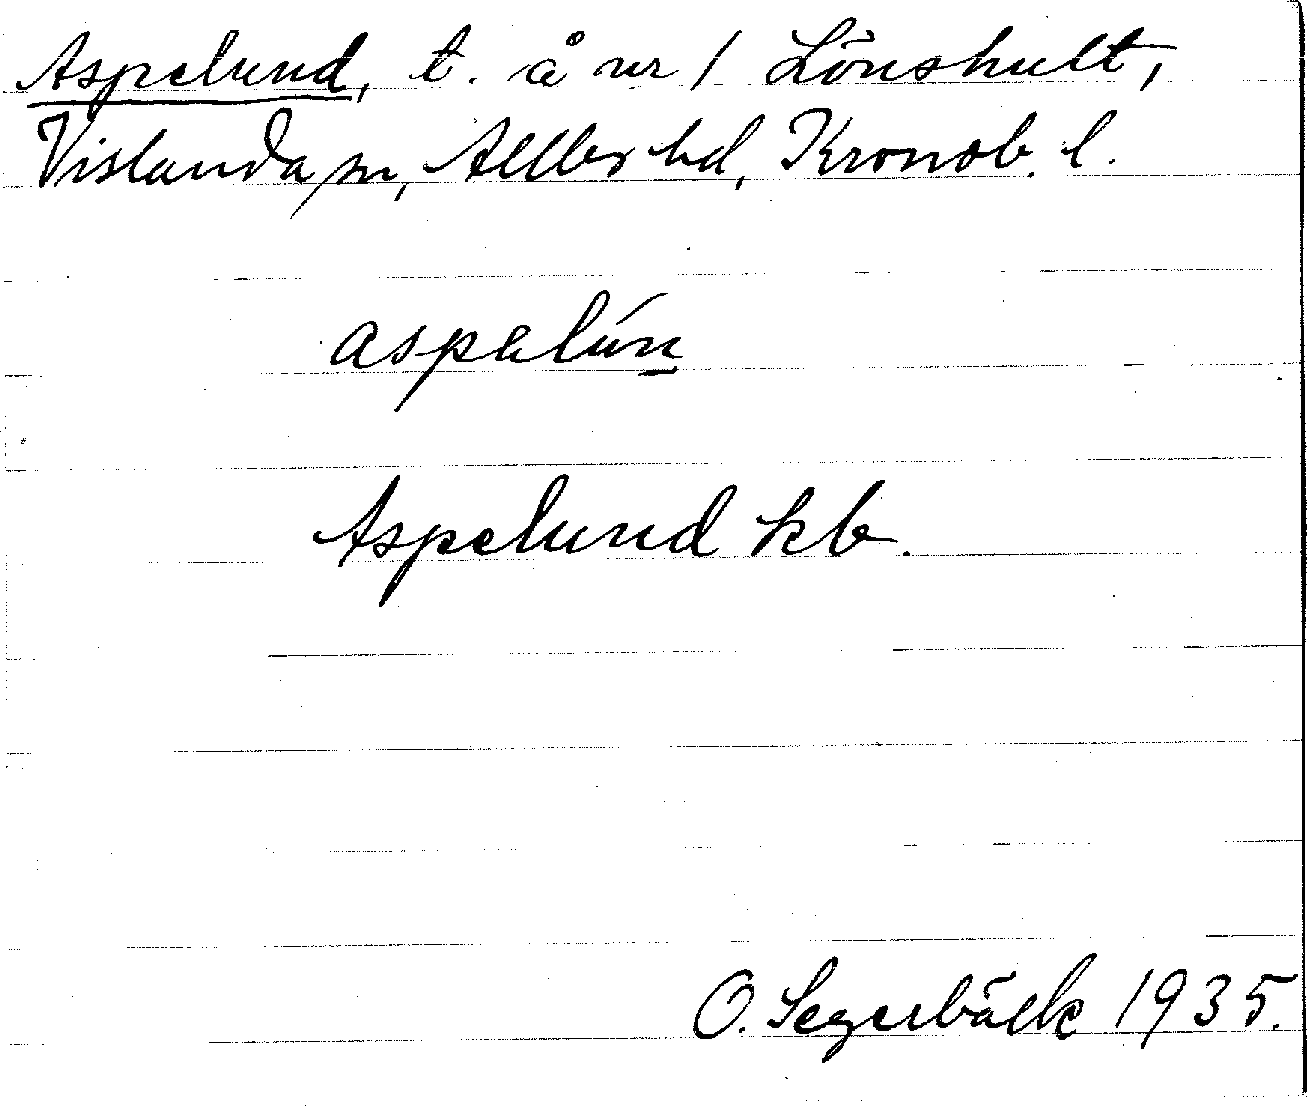 Aspelund, t. å nr 1 Lönshult,
Vislanda sn, Allbo hd, Kronob. l.
aspəlún
Aspelund kb.
O. Segerbäck 1935.